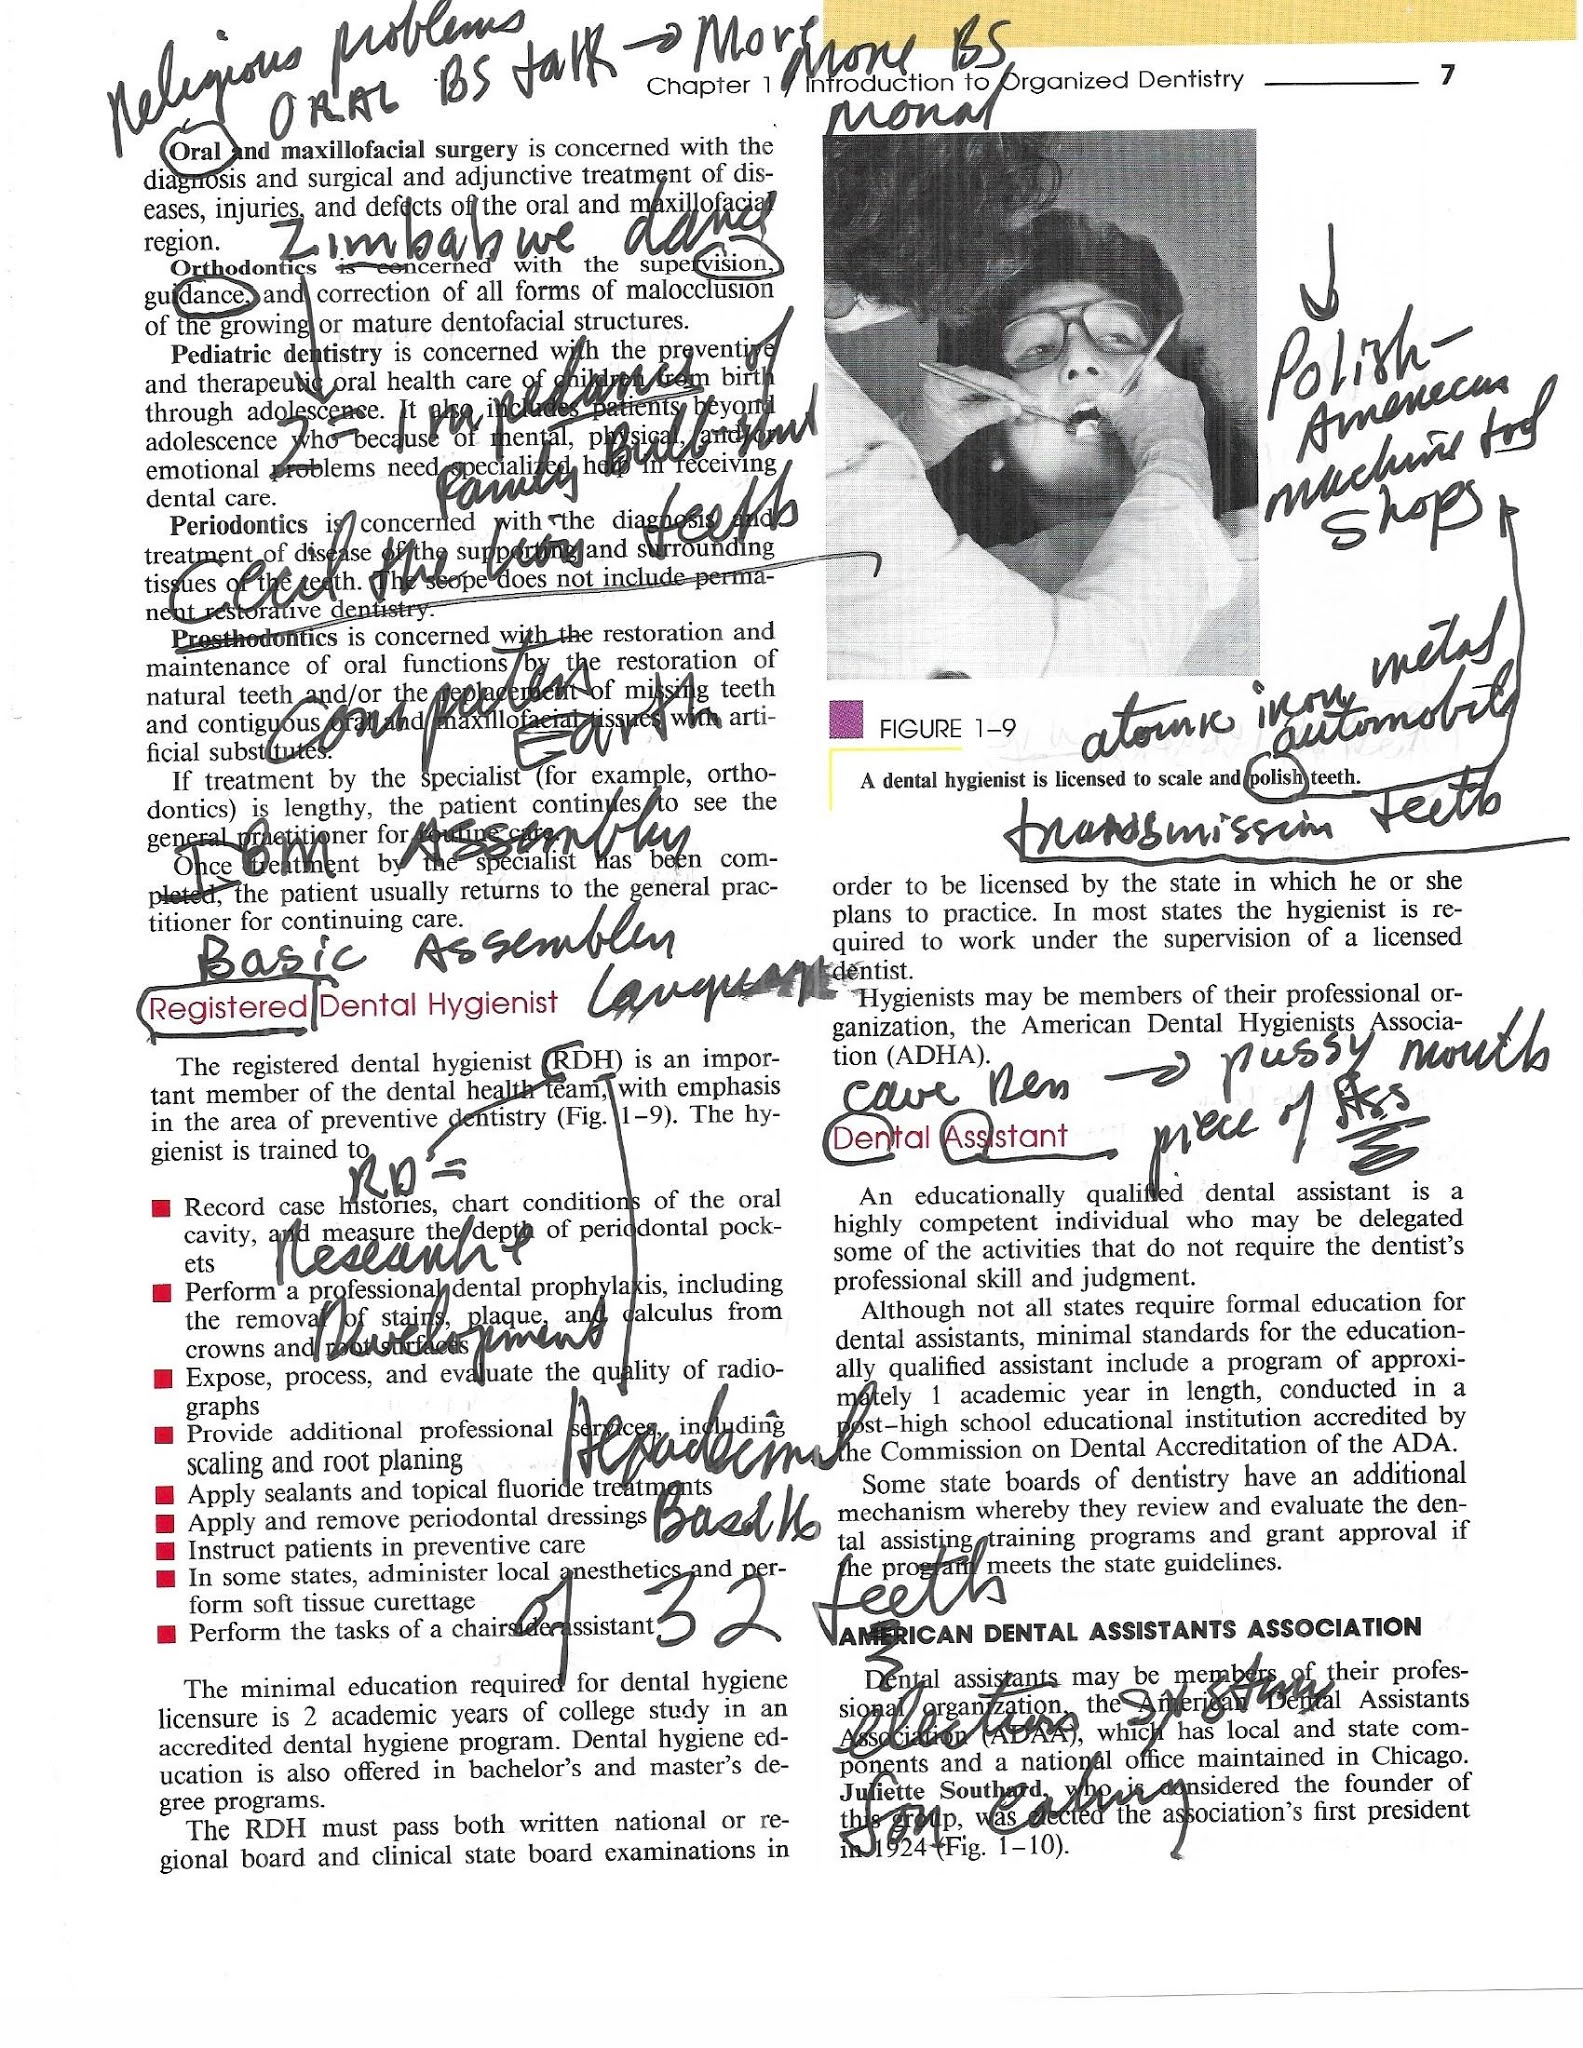 Religious problems
ORAL BS talk → More
More BS
Chapter 1 / Introduction to Organized Dentistry
7
Monal
Oral and maxillofacial surgery is concerned with the
diagnosis and surgical and adjunctive treatment of dis-
eases, injuries, and defects of the oral and maxillofacial
region.
Zimbabwe dance
Orthodontics is concerned with the supervision,
guidance, and correction of all forms of malocclusion
of the growing or mature dentofacial structures.
Pediatric dentistry is concerned with the preventive
and therapeutic oral health care of children from birth
through adolescence. It also includes patients beyond
adolescence who because of mental, physical, and/or
emotional problems need specialized help in receiving
dental care.
Z = Impedance of
Family
Periodontics is concerned with the diagnosis and
treatment of disease of the supporting and surrounding
tissues of the teeth. The scope does not include perma-
nent restorative dentistry.
the lion teeth
Prosthodontics is concerned with the restoration and
maintenance of oral functions by the restoration of
natural teeth and/or the replacement of missing teeth
and contiguous oral and maxillofacial tissues with arti-
ficial substitutes.
Computers
Earth
If treatment by the specialist (for example, ortho-
dontics) is lengthy, the patient continues to see the
general practitioner for routine care.
IBM Assembly
Once treatment by the specialist has been com-
pleted, the patient usually returns to the general prac-
titioner for continuing care.
Basic Assembler
Language
Registered Dental Hygienist
The registered dental hygienist (RDH) is an impor-
tant member of the dental health team, with emphasis
in the area of preventive dentistry (Fig. 1–9). The hy-
gienist is trained to
RD =
Research +
Development
■ Record case histories, chart conditions of the oral
cavity, and measure the depth of periodontal pock-
ets
■ Perform a professional dental prophylaxis, including
the removal of stains, plaque, and calculus from
crowns and root surfaces
■ Expose, process, and evaluate the quality of radio-
graphs
■ Provide additional professional services, including
scaling and root planing
■ Apply sealants and topical fluoride treatments
■ Apply and remove periodontal dressings
■ Instruct patients in preventive care
■ In some states, administer local anesthetics and per-
form soft tissue curettage
■ Perform the tasks of a chairside assistant
Hexadecimal
Base 16
of 32 teeth
The minimal education required for dental hygiene
licensure is 2 academic years of college study in an
accredited dental hygiene program. Dental hygiene ed-
ucation is also offered in bachelor's and master's de-
gree programs.
The RDH must pass both written national or re-
gional board and clinical state board examinations in
Polish-
American
machine tool
shops
FIGURE 1–9
atomic iron metal
automobile
A dental hygienist is licensed to scale and polish teeth.
transmission teeth
order to be licensed by the state in which he or she
plans to practice. In most states the hygienist is re-
quired to work under the supervision of a licensed
dentist.
Hygienists may be members of their professional or-
ganization, the American Dental Hygienists Associa-
tion (ADHA).
cave Den → pussy mouth
piece of Ass
Dental Assistant
An educationally qualified dental assistant is a
highly competent individual who may be delegated
some of the activities that do not require the dentist's
professional skill and judgment.
Although not all states require formal education for
dental assistants, minimal standards for the education-
ally qualified assistant include a program of approxi-
mately 1 academic year in length, conducted in a
post–high school educational institution accredited by
the Commission on Dental Accreditation of the ADA.
Some state boards of dentistry have an additional
mechanism whereby they review and evaluate the den-
tal assisting training programs and grant approval if
the program meets the state guidelines.
AMERICAN DENTAL ASSISTANTS ASSOCIATION
Dental assistants may be members of their profes-
sional organization, the American Dental Assistants
Association (ADAA), which has local and state com-
ponents and a national office maintained in Chicago.
Juliette Southard, who is considered the founder of
this group, was elected the association's first president
in 1924 (Fig. 1–10).
elections system
for eating